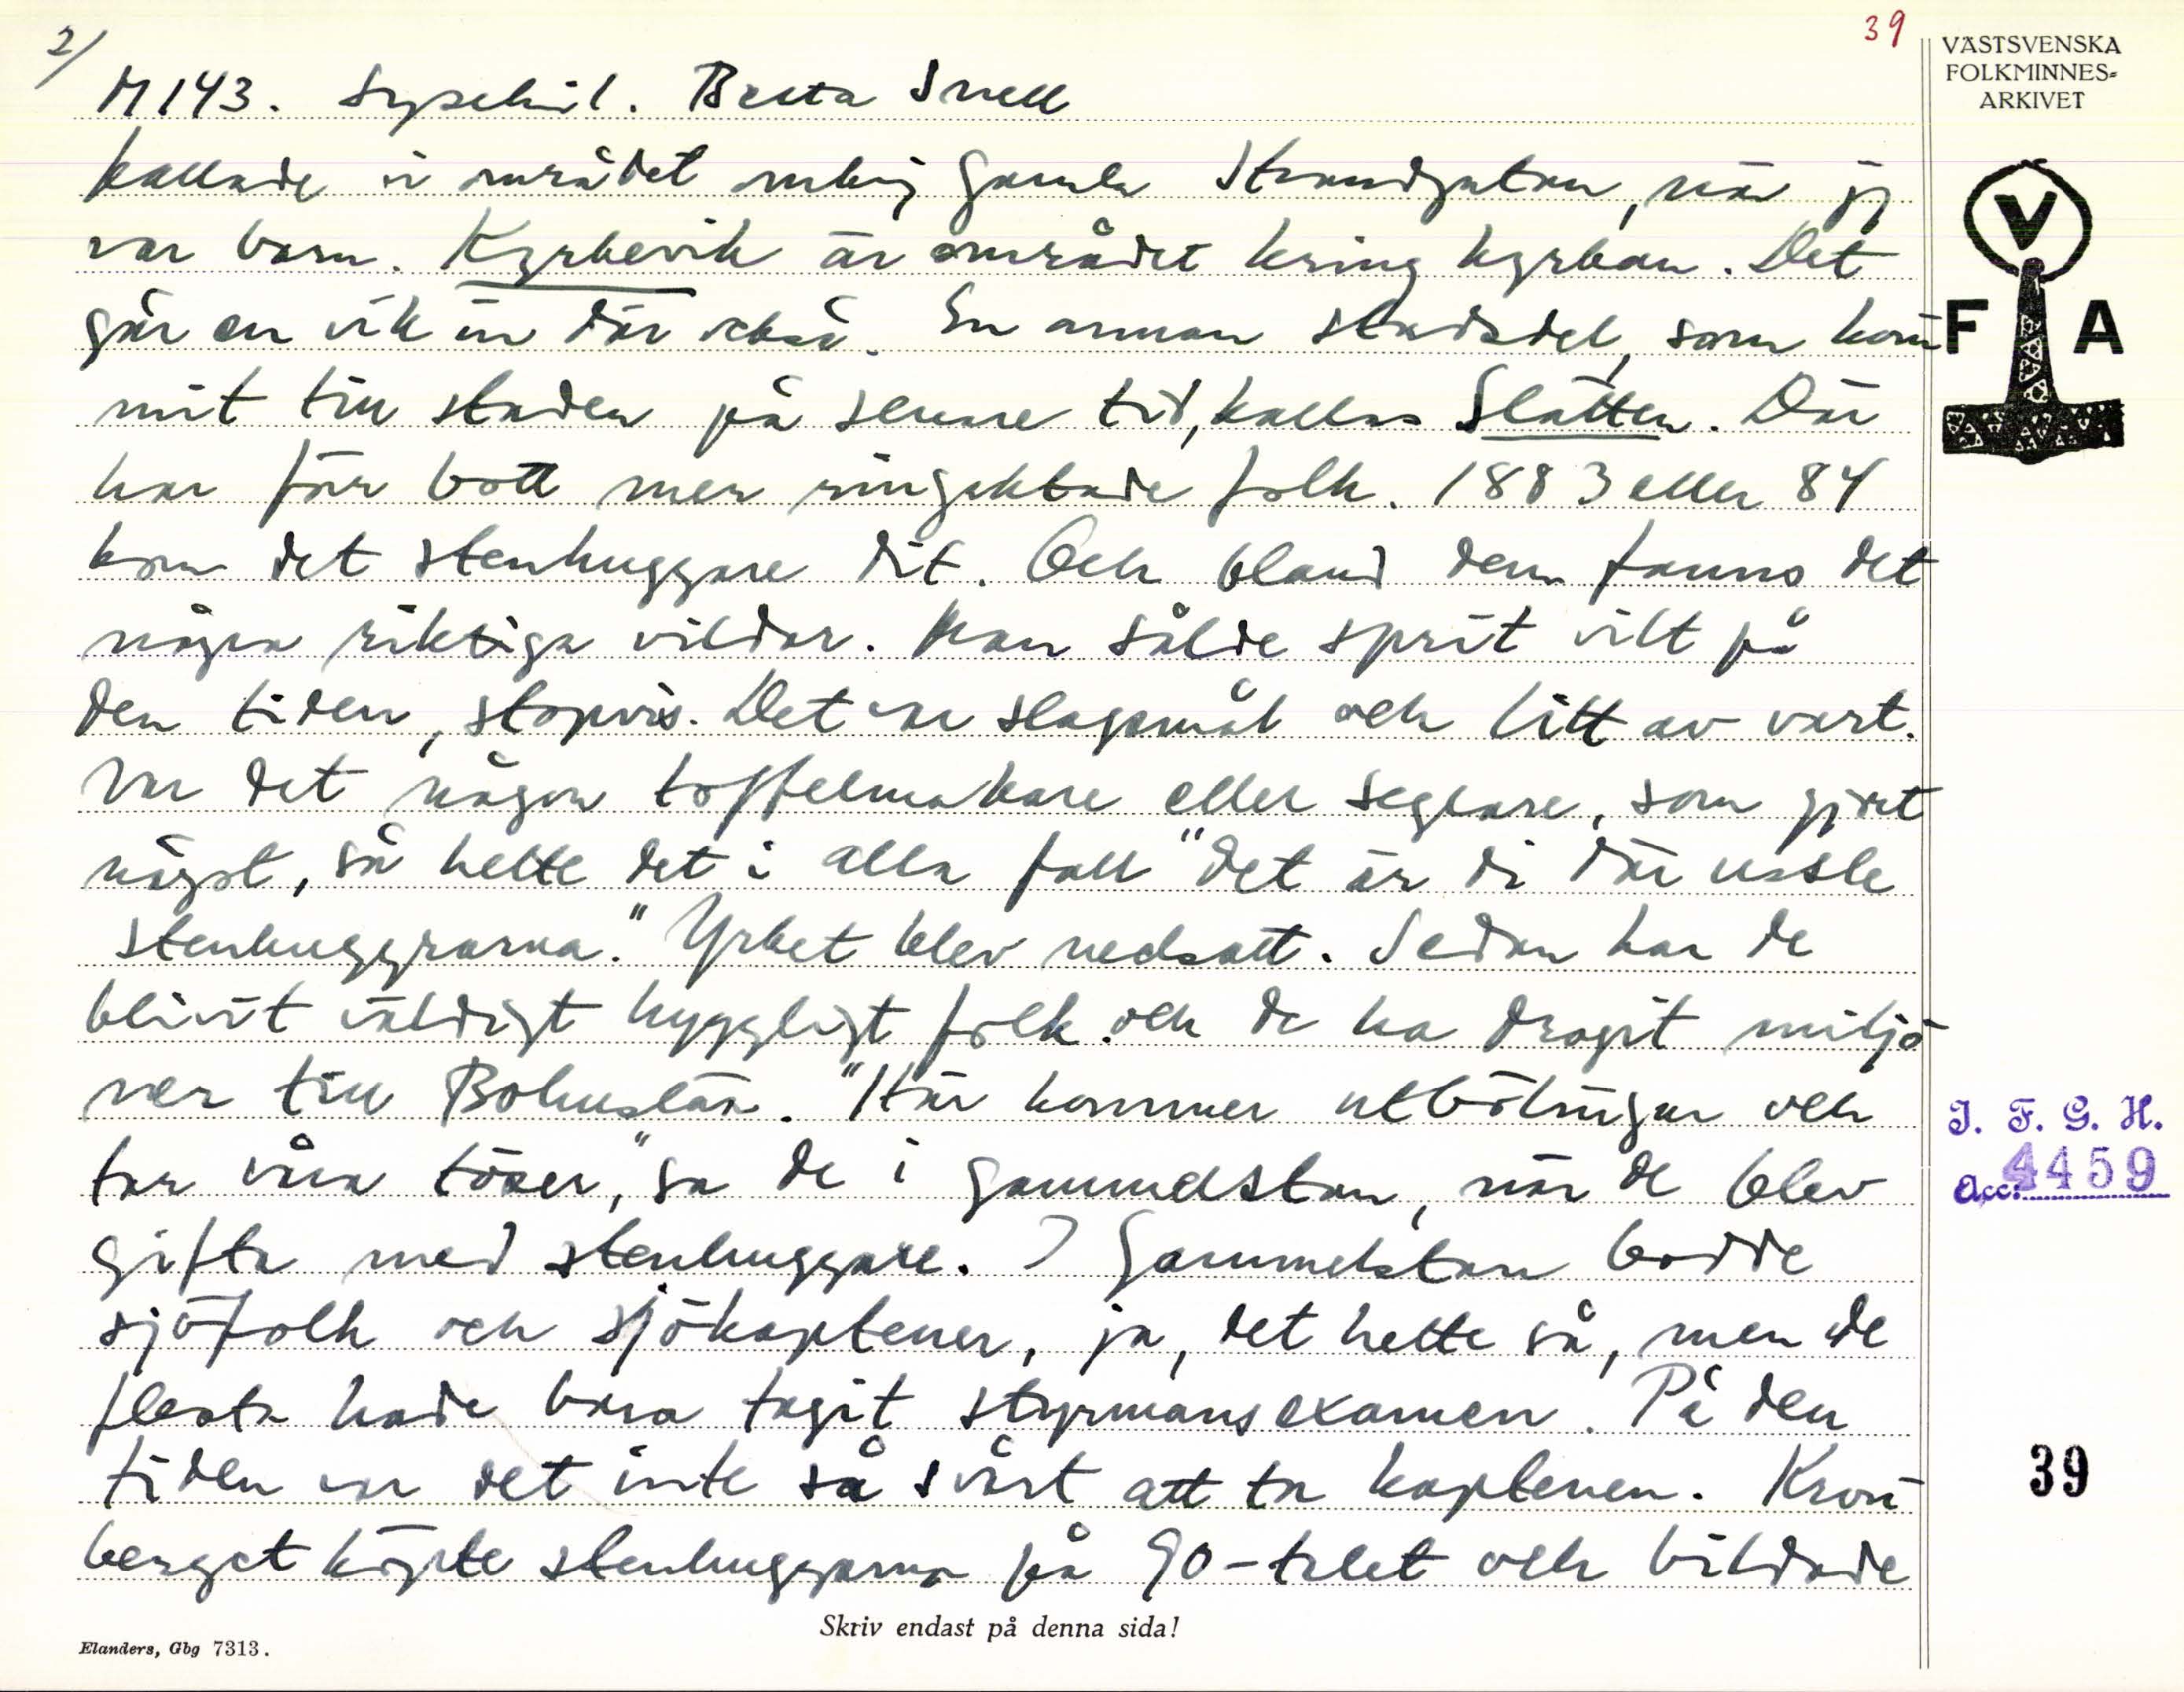 2/
39
M 143. Lysekil. Berta Snell
kallade vi området omkring Gamla Strandgatan, när jag
var barn. Kyrkevik är området kring kyrkan. Det
går en vik in där också. En annan stadsdel, som kom-
mit till staden på senare tid, kallas Slätten. Där
har förr bott mer ringaktade folk. 1883 eller 84
kom det stenhuggare dit. Och bland dem fanns det
några riktiga vildar. Man sålde sprit vilt på
den tiden, stopvis. Det var slagsmål och litt av vart.
Var det någon toffelmakare eller seglare, som gjort
något, så hette det i alla fall "det är di där ussle
stenhuggrarna." Yrket blev nedsatt. Sedan har de
blivit väldigt hyggligt folk. och de ha dragit miljo-
ner till Bohuslän. "Här kommer utbölingar och
tar våra töser," sa de i Gammelstan, när de blev
gifta med stenhuggare. I Gammelstan bodde
sjöfolk och sjökaptener, ja, det hette så, men de
flesta hade bara tagit styrmansexamen. På den
tiden var det inte så svårt att ta kaptenen. Kron-
berget köpte stenhuggarna på 90-talet och bildade
Skriv endast på denna sida!
Elanders, Gbg 7313.
VÄSTSVENSKA
FOLKMINNES-
ARKIVET
V
F A
I. F. G. H.
Acc. 4459
39